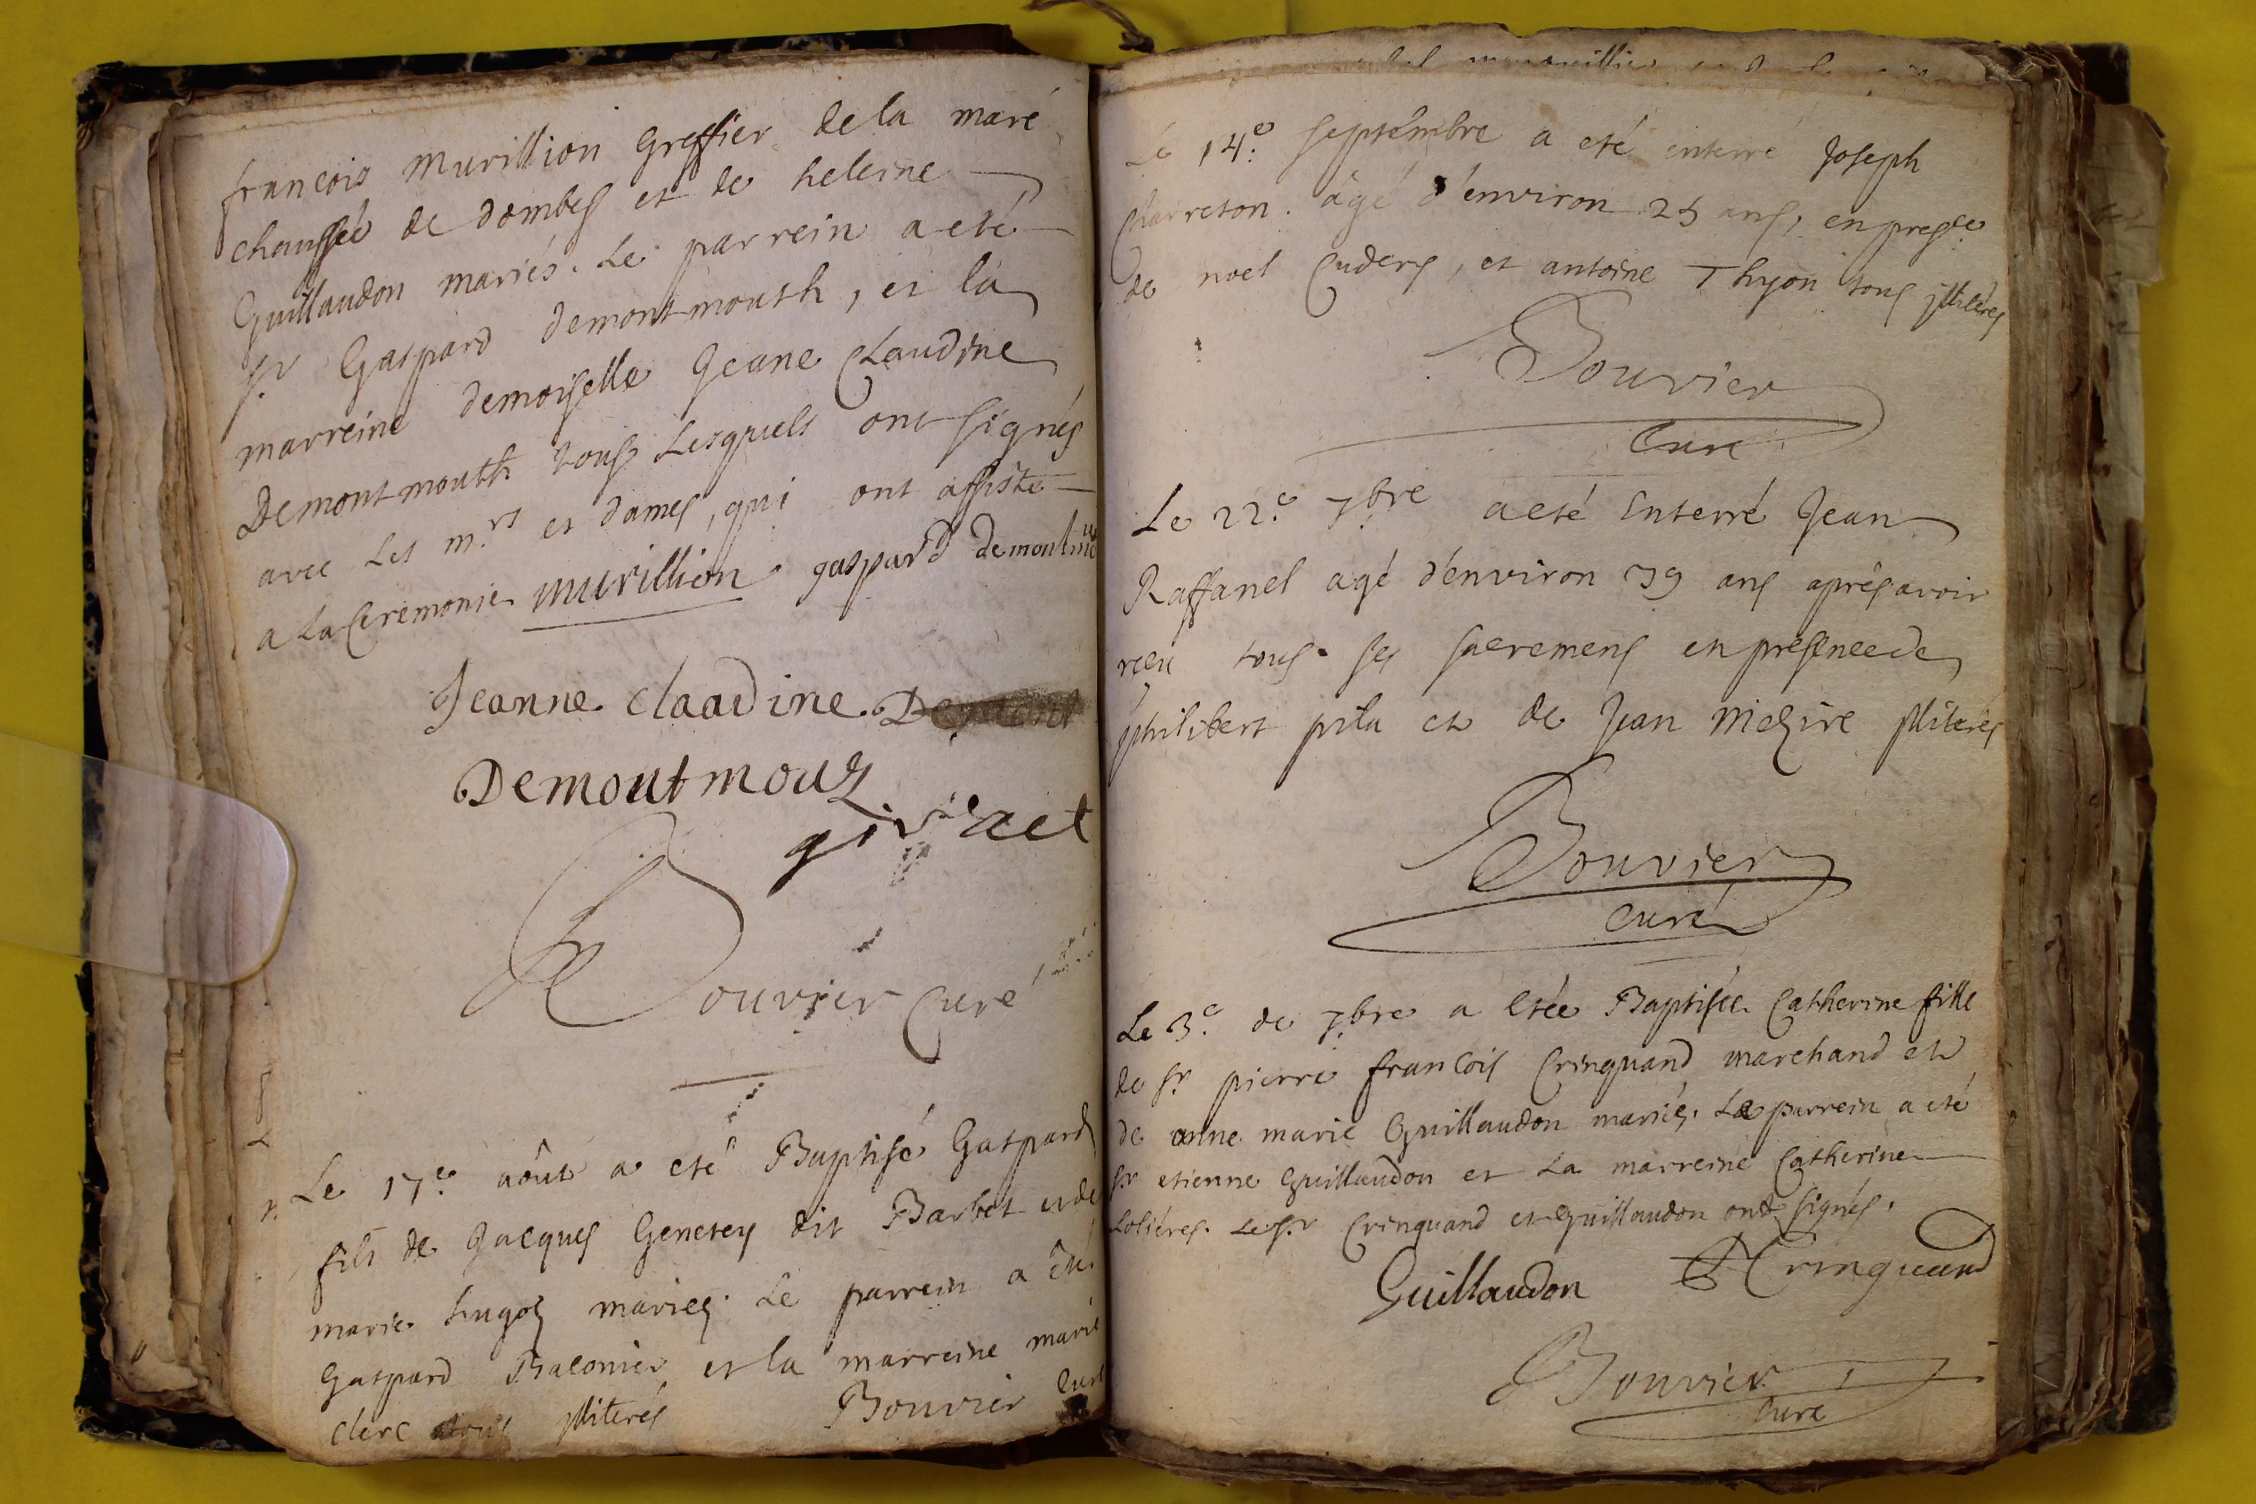 françois Murillion Greffier de la maré
chaussée de dombes et de heleine
Guillaudon mariés. Le parrein a eté
sr Gaspard demontmouth, et la
marreine demoiselle Jeane Claudine
Demontmouth tous Lesquels ont signés
avec Les m.rs et dames, qui ont assisté
a La Ceremonie murillion gaspard
Jeanne claadine
Demoutmouz
Bouvier Curé
Le 17e. aôut a eté Baptisé Gaspard
fils de Jacques Genetey dit Barbet et de
marie hugoz mariez. Le parrein a été
Gaspard Baconier et la marreine marie
clerc illiterés Bouvier Curé
Le 14e. septembre a eté enterré Joseph
Charreton. âgé d'environ 25 ans, en presce.
de noel Cuders, et antoine Thyon tous illiterés
Bouvier
Curé
Le 22e. 7bre a eté Enterré Jean
Raffanel agé d'environ 39 ans aprés avoir
reçu tous ses sacremens en presence de
philibert pila et de Jean Mezire illiterés
Bouvier
Curé
Le 3e. de 7bre a Etée Baptisée Catherine fille
de sr. pierre françois Cringuand marchand et
de anne marie Guillaudon mariés. Le parrein a eté
sr etienne Guillaudon et La marreine Catherine
Loliéres. Le sr Cringuand et Guillaudon ont signés.
Guillaudon Cringuand
Bouvier
Curé